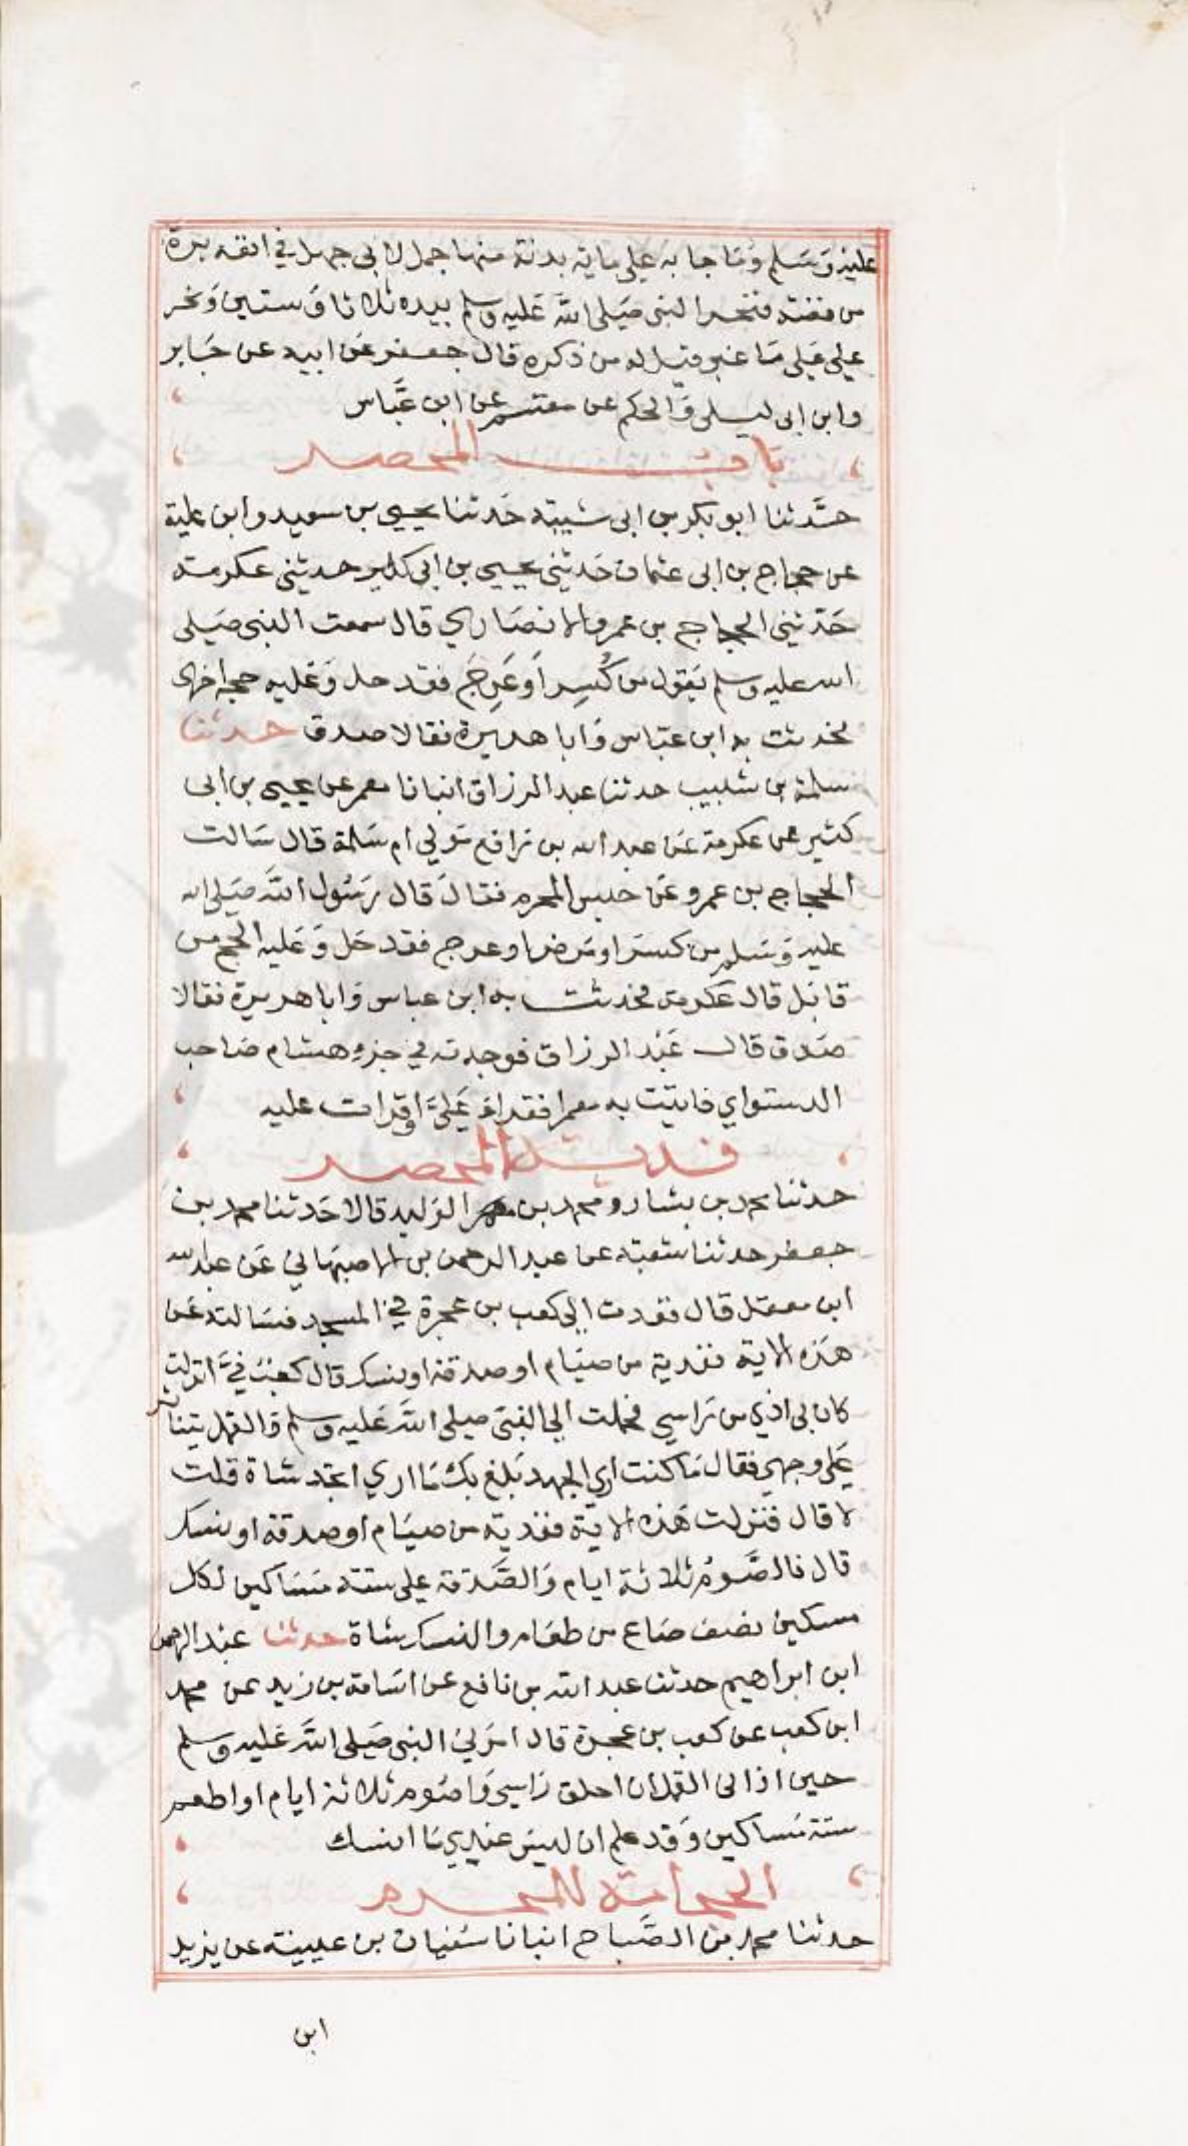 عليه وسلم وما جا به علي ماية بدنة منها جمل لابي جهل في انفه برة
من فضة فنحر النبي صلى الله عليه وسلم بيده ثلاثا وستين ونحر
علي على ما غبر قيل له من ذكره قال جعفر عن ابيه عن جابر
وابن ابى ليلى والحكم عن مقسم عن ابن عباس
باب المحصر
حدثنا ابو بكر بن ابى شيبة حدثنا يحيى بن سعيد وابن علية
عن حجاج بن ابى عثمان حدثنى يحيى بن ابى كثير حدثنى عكرمة
حدثنى الحجاج بن عمرو الانصاري قال سمعت النبى صلى
الله عليه وسلم يقول من كُسِر او عَرِجَ فقد حل وعليه حجة اخرى
فحدثت به ابن عباس وابا هريرة فقالا صدق حدثنا
سلمة بن شبيب حدثنا عبد الرزاق انبانا معمر عن يحيى بن ابى
كثير عن عكرمة عن عبد الله بن رافع مولي ام سلمة قال سالت
الحجاج بن عمرو عن حبس المحرم فقال قال رسول الله صلى الله
عليه وسلم من كسر او مرض او عرج فقد حل وعليه الحج من
قابل قال عكرمة فحدثت به ابن عباس وابا هريرة فقالا
صدق قال عبد الرزاق فوجدته في جزء هشام صاحب
الدستواي فاتيت به معمرا فقراه عليَّ او قرات عليه
فدية المحصر
حدثنا محمد بن بشار ومحمد بن الوليد قالا حدثنا محمد بن
جعفر حدثنا شعبة عن عبد الرحمن بن الاصبهاني عن عبد الله
ابن معقل قال فقدت الى كعب بن عجرة في المسجد فسالته عن
هذه الاية ففدية من صيام او صدقة او نسك قال كعب فيَّ انزلت
كان بى اذي من راسي فحملت الى النبى صلى الله عليه وسلم والقمل يتناثر
على وجهي فقال ما كنت اري الجهد بلغ بك ما اري اتجد شاة قلت
لا قال فنزلت هذه الاية ففدية من صيام او صدقة او نسك
قال فالصَّوم ثلاثة ايام والصَّدقة على ستة مساكين لكل
مسكين نصف صاع من طعام والنسك شاة حدثنا عبد الرحمن
ابن ابراهيم حدثنا عبد الله بن نافع عن اسامة بن زيد عن محمد
ابن كعب عن كعب بن عجرة قال امرني النبى صلى الله عليه وسلم
حين اذانى القمل ان احلق راسي واصوم ثلاثة ايام او اطعم
ستة مساكين وقد علم ان ليس عندي ما انسك
الحجامة للمحرم
حدثنا محمد بن الصَّباح انبانا سفيان بن عيينة عن يزيد
ابن